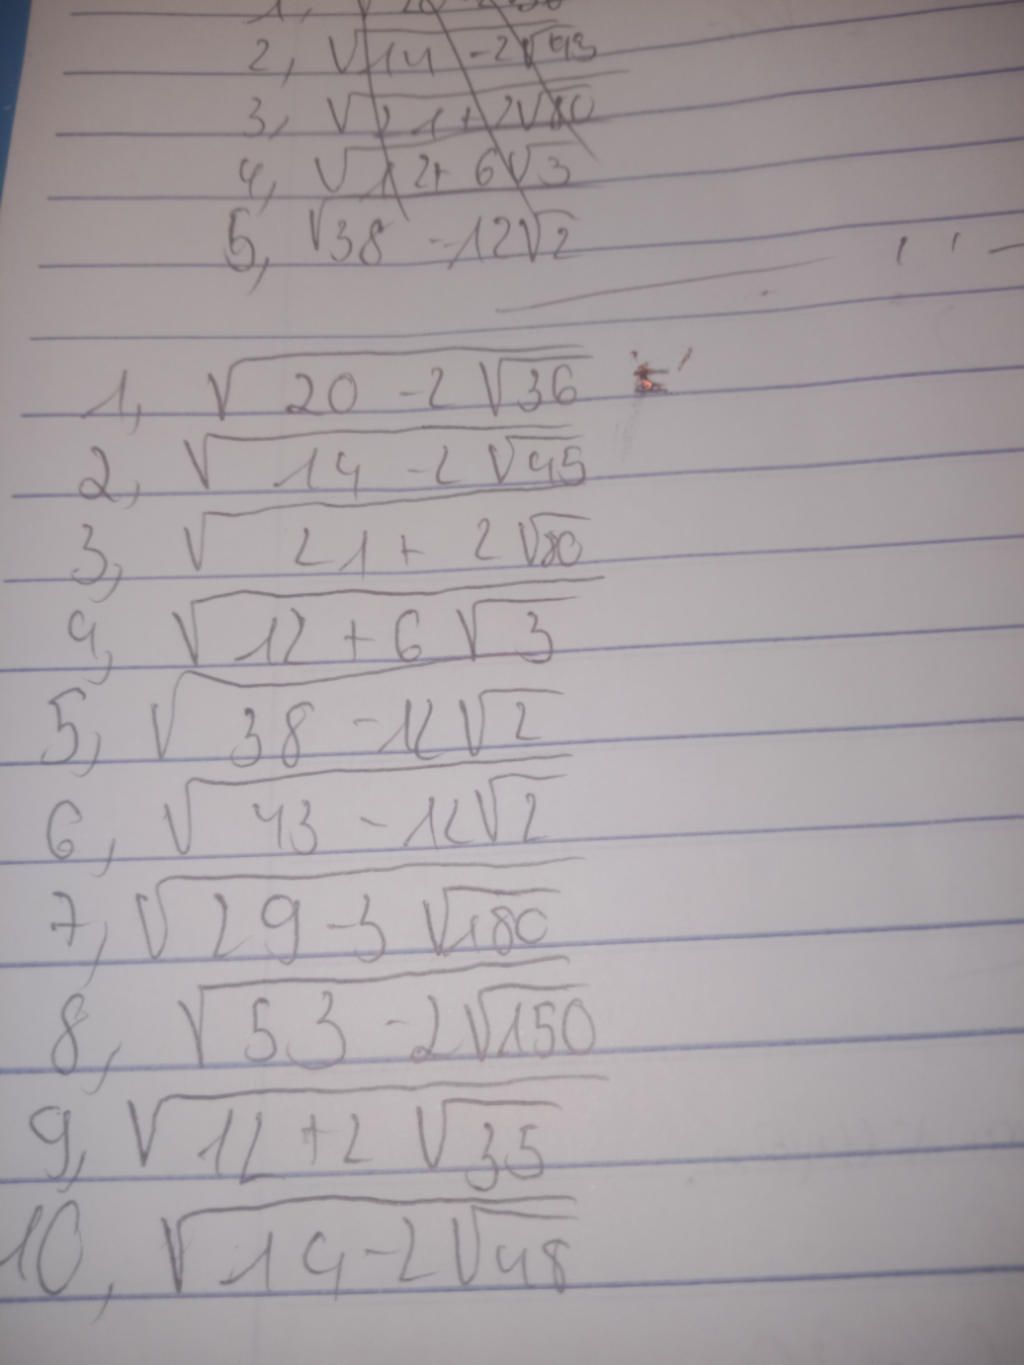 2, √14 - 2√43
3, √21 + 2√80
4, √12 + 6√3
5, √38 - 12√2
1, √20 - 2√36
2, √14 - 2√45
3, √21 + 2√80
4, √12 + 6√3
5, √38 - 12√2
6, √43 - 12√2
7, √29 - 3√180
8, √53 - 2√150
9, √12 + 2√35
10, √14 - 2√48